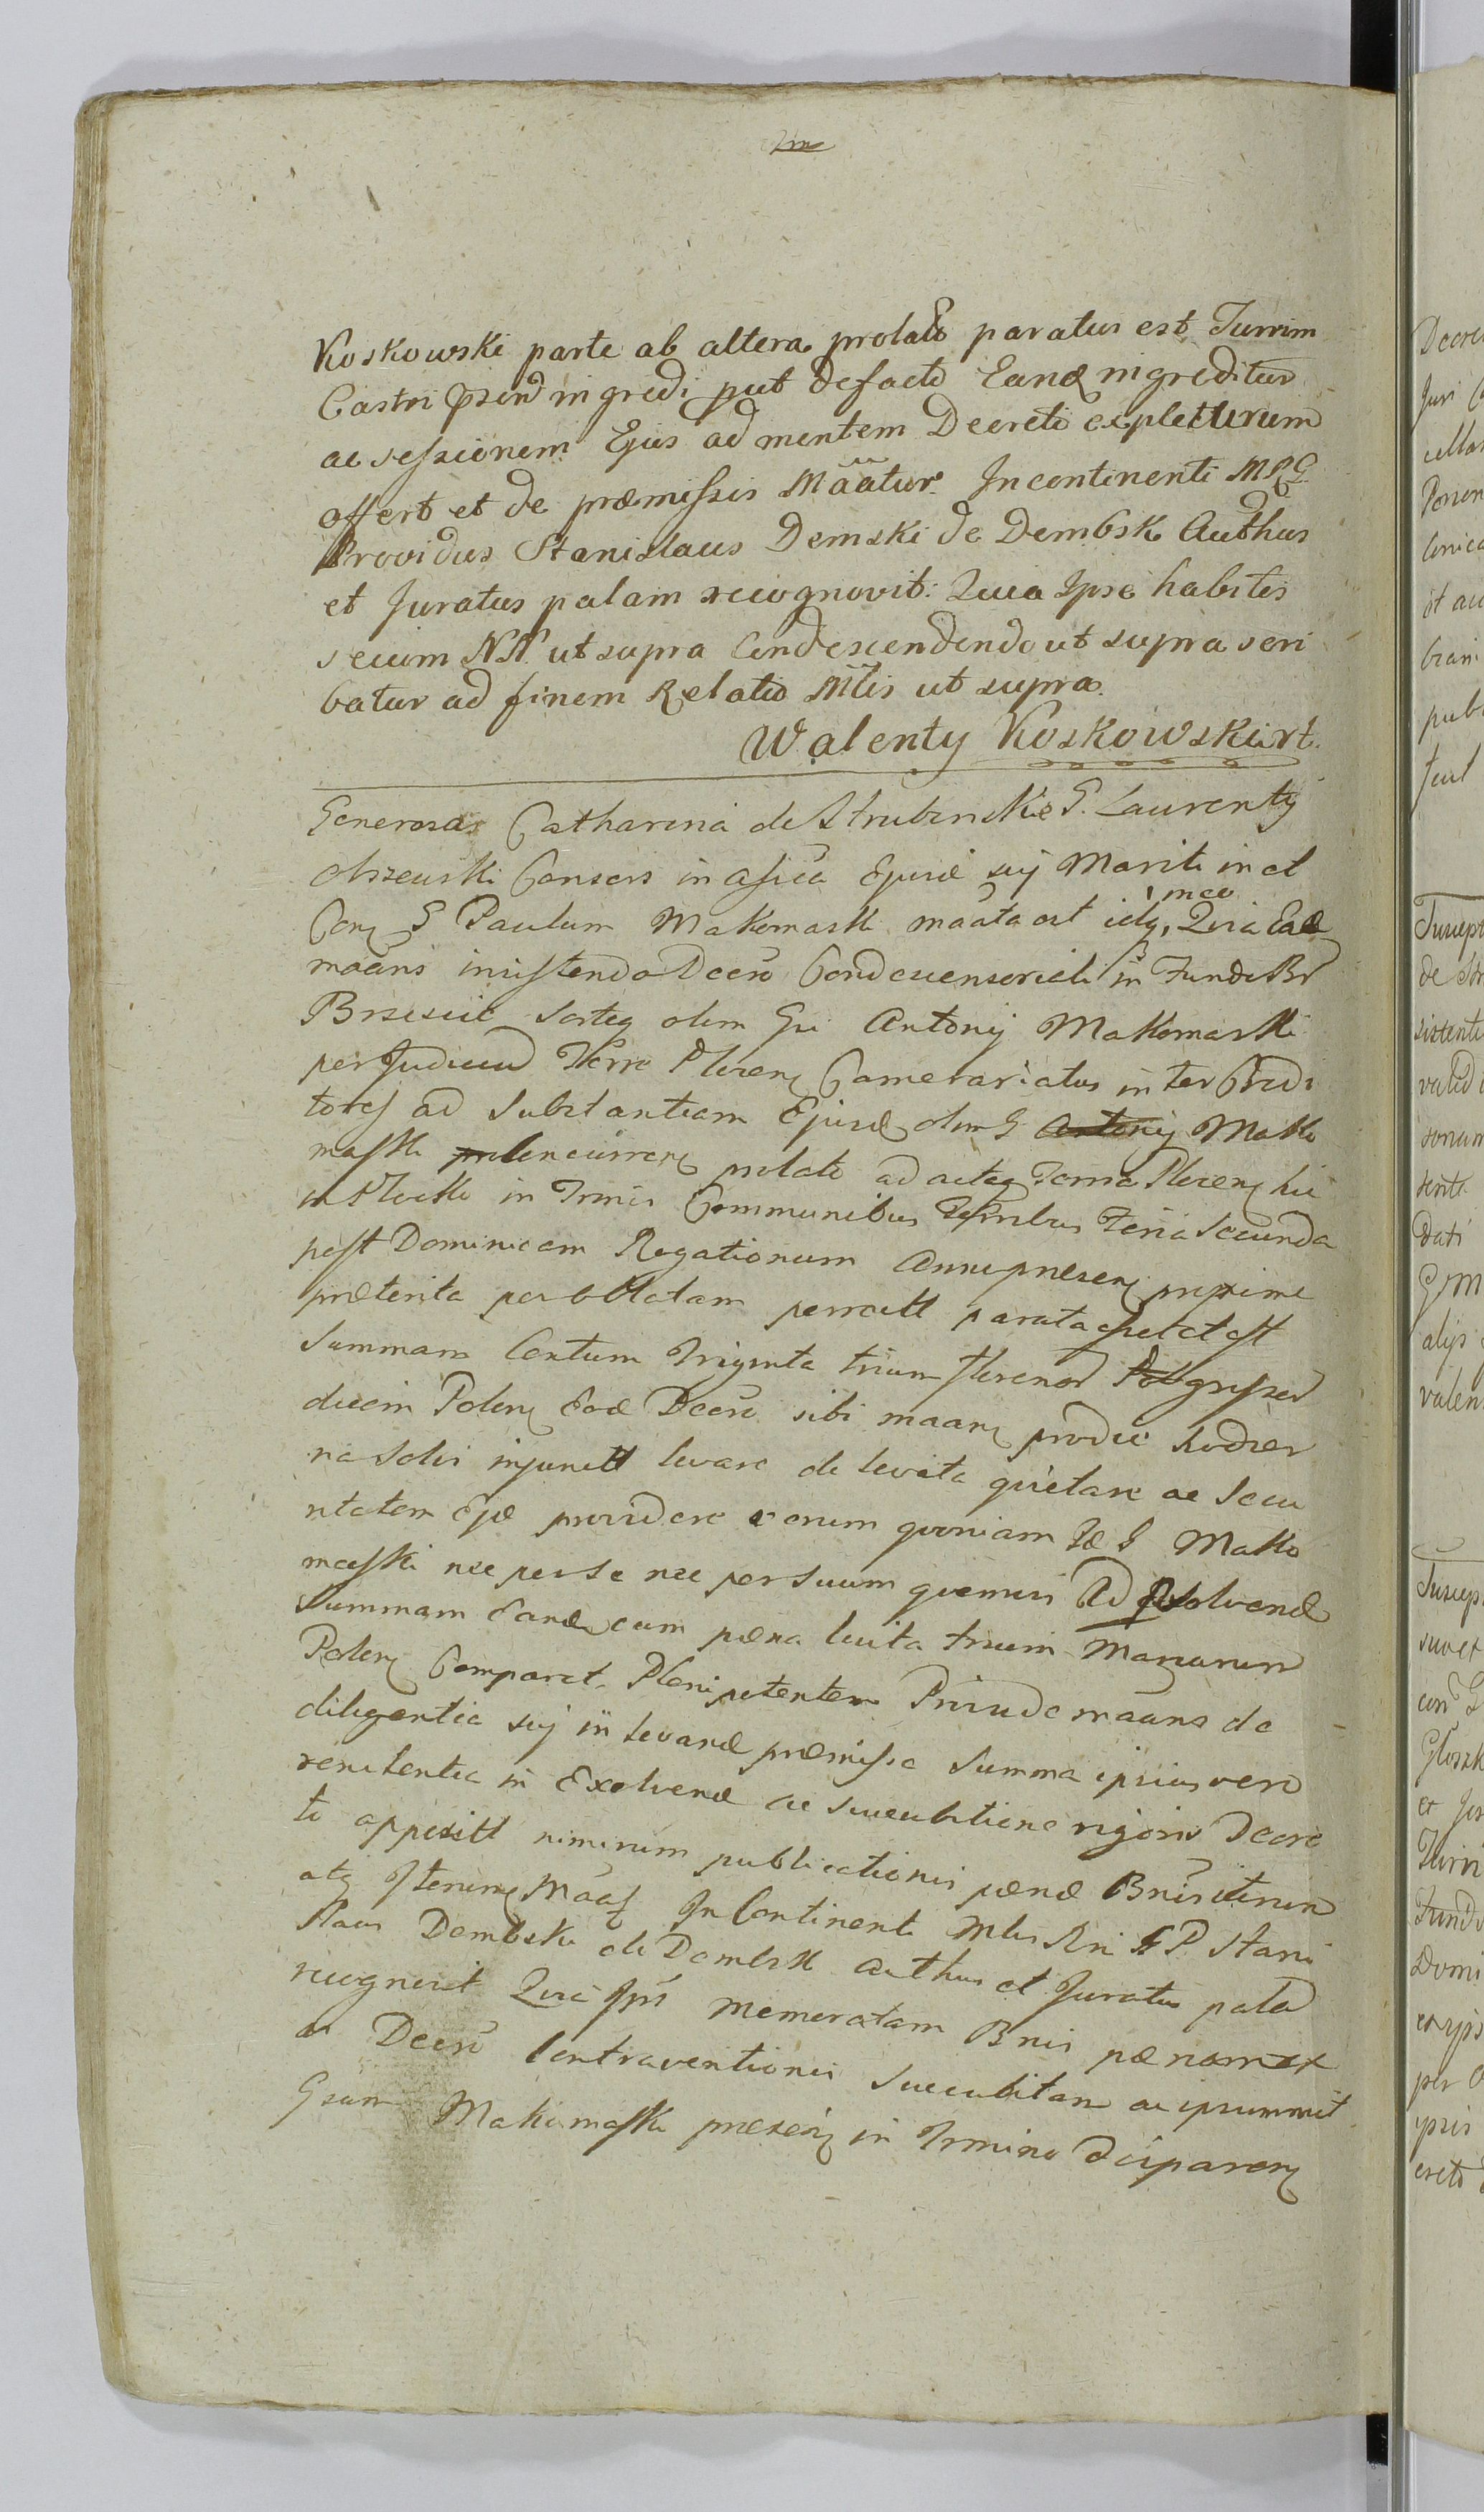 Koskowski parte ab altera prolato paratus est Turrim
Castri ingredi put defacto Eand ingreditur
ac sessionem Ejus ad mentem Decreti expleturum
offert et de præmissis Māātur. Incontinenti MRG
Providus Stanislaus Demski de Dembsk Authus
et Juratus palam recognovit: Quia Ipse habitis
secum NN. ut supra Condescendendo ut supra scri
batur ad finem Relatio Mltis ut supra.
Walenty Koskowski
Generosa Catharina de G. Laurenty
Olszewski Consors in assia Ejusd sui Mariti in et
Con G Paulum Makomask maata est idq, Quia Ead
maans insistendo Decro Condescensoriali in Fundo Br
Brzescie sorteq olim Gsi Antonij Makomaski
per Judicium Terre Plocen Camerariatus inter Credi
tores ad Substantiam Ejusd olim G Antonij Mako
maski concurren prolato ad acteq Terra Plocen hic
in Plocko in Trmis Communibus Tribus Feria Secunda
post Dominicam Rogationum Anni presen proxime
præterita per oblatam parata est
Summam Centum Triginta trium florenor Pol grosser
decin Polon Eod Decro sibi maan prodie hodier
na solvi injunctt levare de levata quietare ac Secu
ritatem Ejæ providere verum quoniam G Mako
maski nec per se nec per suum quemvis Ad Exsolvend
Summam Eand cum pæna luita trium Marcarum
Polon Comparet Plenipotentem Proinde maans de
diligentia sui in levand præmissa Summa ipsius vero
renitentia in Exolvend ac succubitione rigoris Decre
to appositt nimirum publicationis pænæ Bnis iterum
atq Iterum Māāt In Continenti Mlis Rni G P Stani
slaus Dembski de Dembsk Authus et Juratus pala
recognovit Quia Ips memoratam Bnis pænam ex
ac Decro Contraventionis succubitam ac ipsummet
Gsum Makomaski præsen in Trmino